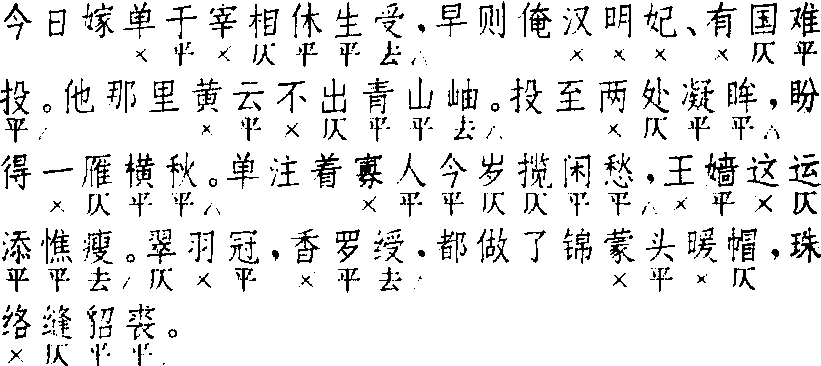 今日嫁单于宰相休生受，早则俺汉明妃、有国难
×平×仄平平去△×××仄平
投。他那里黄云不出青山岫。投至两处凝眸，盼
平△×平×仄平平去△×仄平平△
得一雁横秋。单注着寡人今岁揽闲愁，王嫱这运
×仄平平△×平平仄仄平平△×平×仄
添憔瘦。翠羽冠，香罗绶，都做了锦蒙头暖帽，珠
平平去△仄×平×平去△×平×仄
络缝貂裘。
×仄平平